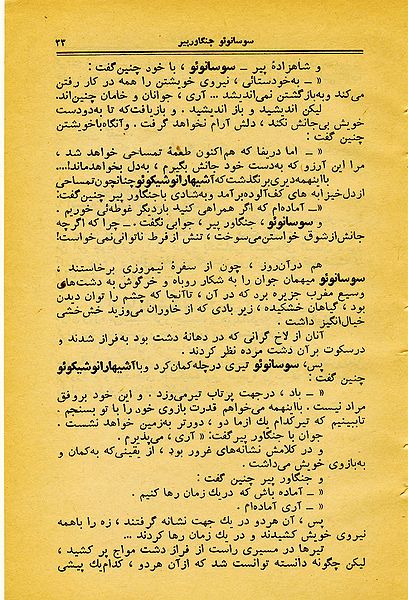 سوسانوئو جنگاورپیر
۳۳
و شاهزادهٔ پیر ـ سوسانوئو ، با خود چنین‌گفت :
« ـ به‌خودستائی ، نیروی خویشتن را همه در کار رفتن
می‌کند وبه‌بازگشتن نمی‌اندیشد ... آری ، جوانان و خامان چنین‌اند.
لیکن اندیشید و باز اندیشید . و بازیافت‌که تا به‌دودست
خویش بی‌جانش نکند ، دلش آرام نخواهد گرفت . وآنگاه‌باخویشتن
چنین گفت :
« ـ اما دریغا که هم‌اکنون طعمهٔ تمساحی خواهد شد ،
مرا این آرزو که‌به‌دست خود جانش بگیرم ، به‌دل بخواهدماند!....
بااینهمه‌دیری‌برنگذشت‌که‌آشیهارانوشیکوئو چنانچون‌تمساحی
ازدل‌خیزابه های کف‌آلوده‌برآمد وبه‌شادی باجنگاور پیر چنین‌گفت:
« ـ آماده‌ام که اگر همراهی کنید باردیگر غوطه‌ئی خوریم .
و سوسانوئو ، جنگاور پیر ، جوابی نگفت . ـ چرا که اگرچه
جانش‌ازشوق خواستن‌می‌سوخت ، تنش از فرط ناتوانی نمی‌خواست!
هم درآن‌روز ، چون از سفرهٔ نیمروزی برخاستند ،
سوسانوئو میهمان جوان را به شکار روباه و خرگوش به دشت‌های
وسیع مغرب جزیره برد که در آن ، تاآنجا که چشم را توان دیدن
بود ، گیاهان خشکیده ، زیر بادی که از خاوران می‌وزید خش‌خشی
خیال‌انگیز داشت .
آنان از لاخ گرانی که در دهانهٔ دشت بود به‌فراز شدند و
درسکوت برآن دشت مرده نظر کردند .
پس، سوسانوئو تیری درچله‌کمان‌کرد وباآشیهارانوشیکوئو
چنین گفت :
« ـ باد ، درجهت پرتاب تیرمی‌وزد . و این خود بروفق
مراد نیست . بااینهمه می‌خواهم قدرت بازوی خود را با تو بسنجم .
تاببینیم که تیرکدام یك ازما دو ، دورتر به‌زمین خواهد نشست .
جوان با جنگاور پیرگفت: « آری ، می‌پذیرم .
و در کلامش نشانه‌های غرور بود ، از یقینی‌که به‌کمان و
به‌بازوی خویش می‌داشت .
و جنگاور پیر چنین گفت :
« ـ آماده باش که دریك زمان رها کنیم .
« ـ آری آماده‌ام .
پس ، آن هردو در یك جهت نشانه گرفتند ، زه را باهمه
نیروی خویش کشیدند و در یك زمان رها کردند ...
تیرها در مسیری راست از فراز دشت مواج پر کشید ،
لیکن چگونه دانسته توانست شد که ازآن هردو ، کدام‌یك پیشی